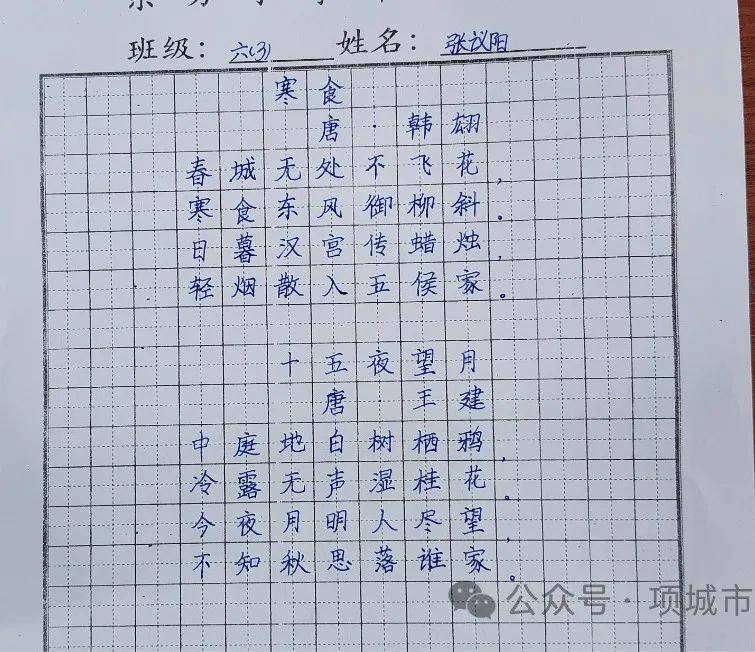 班级：六(3) 姓名：张议阳
寒食
唐·韩翃
春城无处不飞花，
寒食东风御柳斜。
日暮汉宫传蜡烛，
轻烟散入五侯家。
十五夜望月
唐·王建
中庭地白树栖鸦，
冷露无声湿桂花。
今夜月明人尽望，
不知秋思落谁家。
公众号·项城市